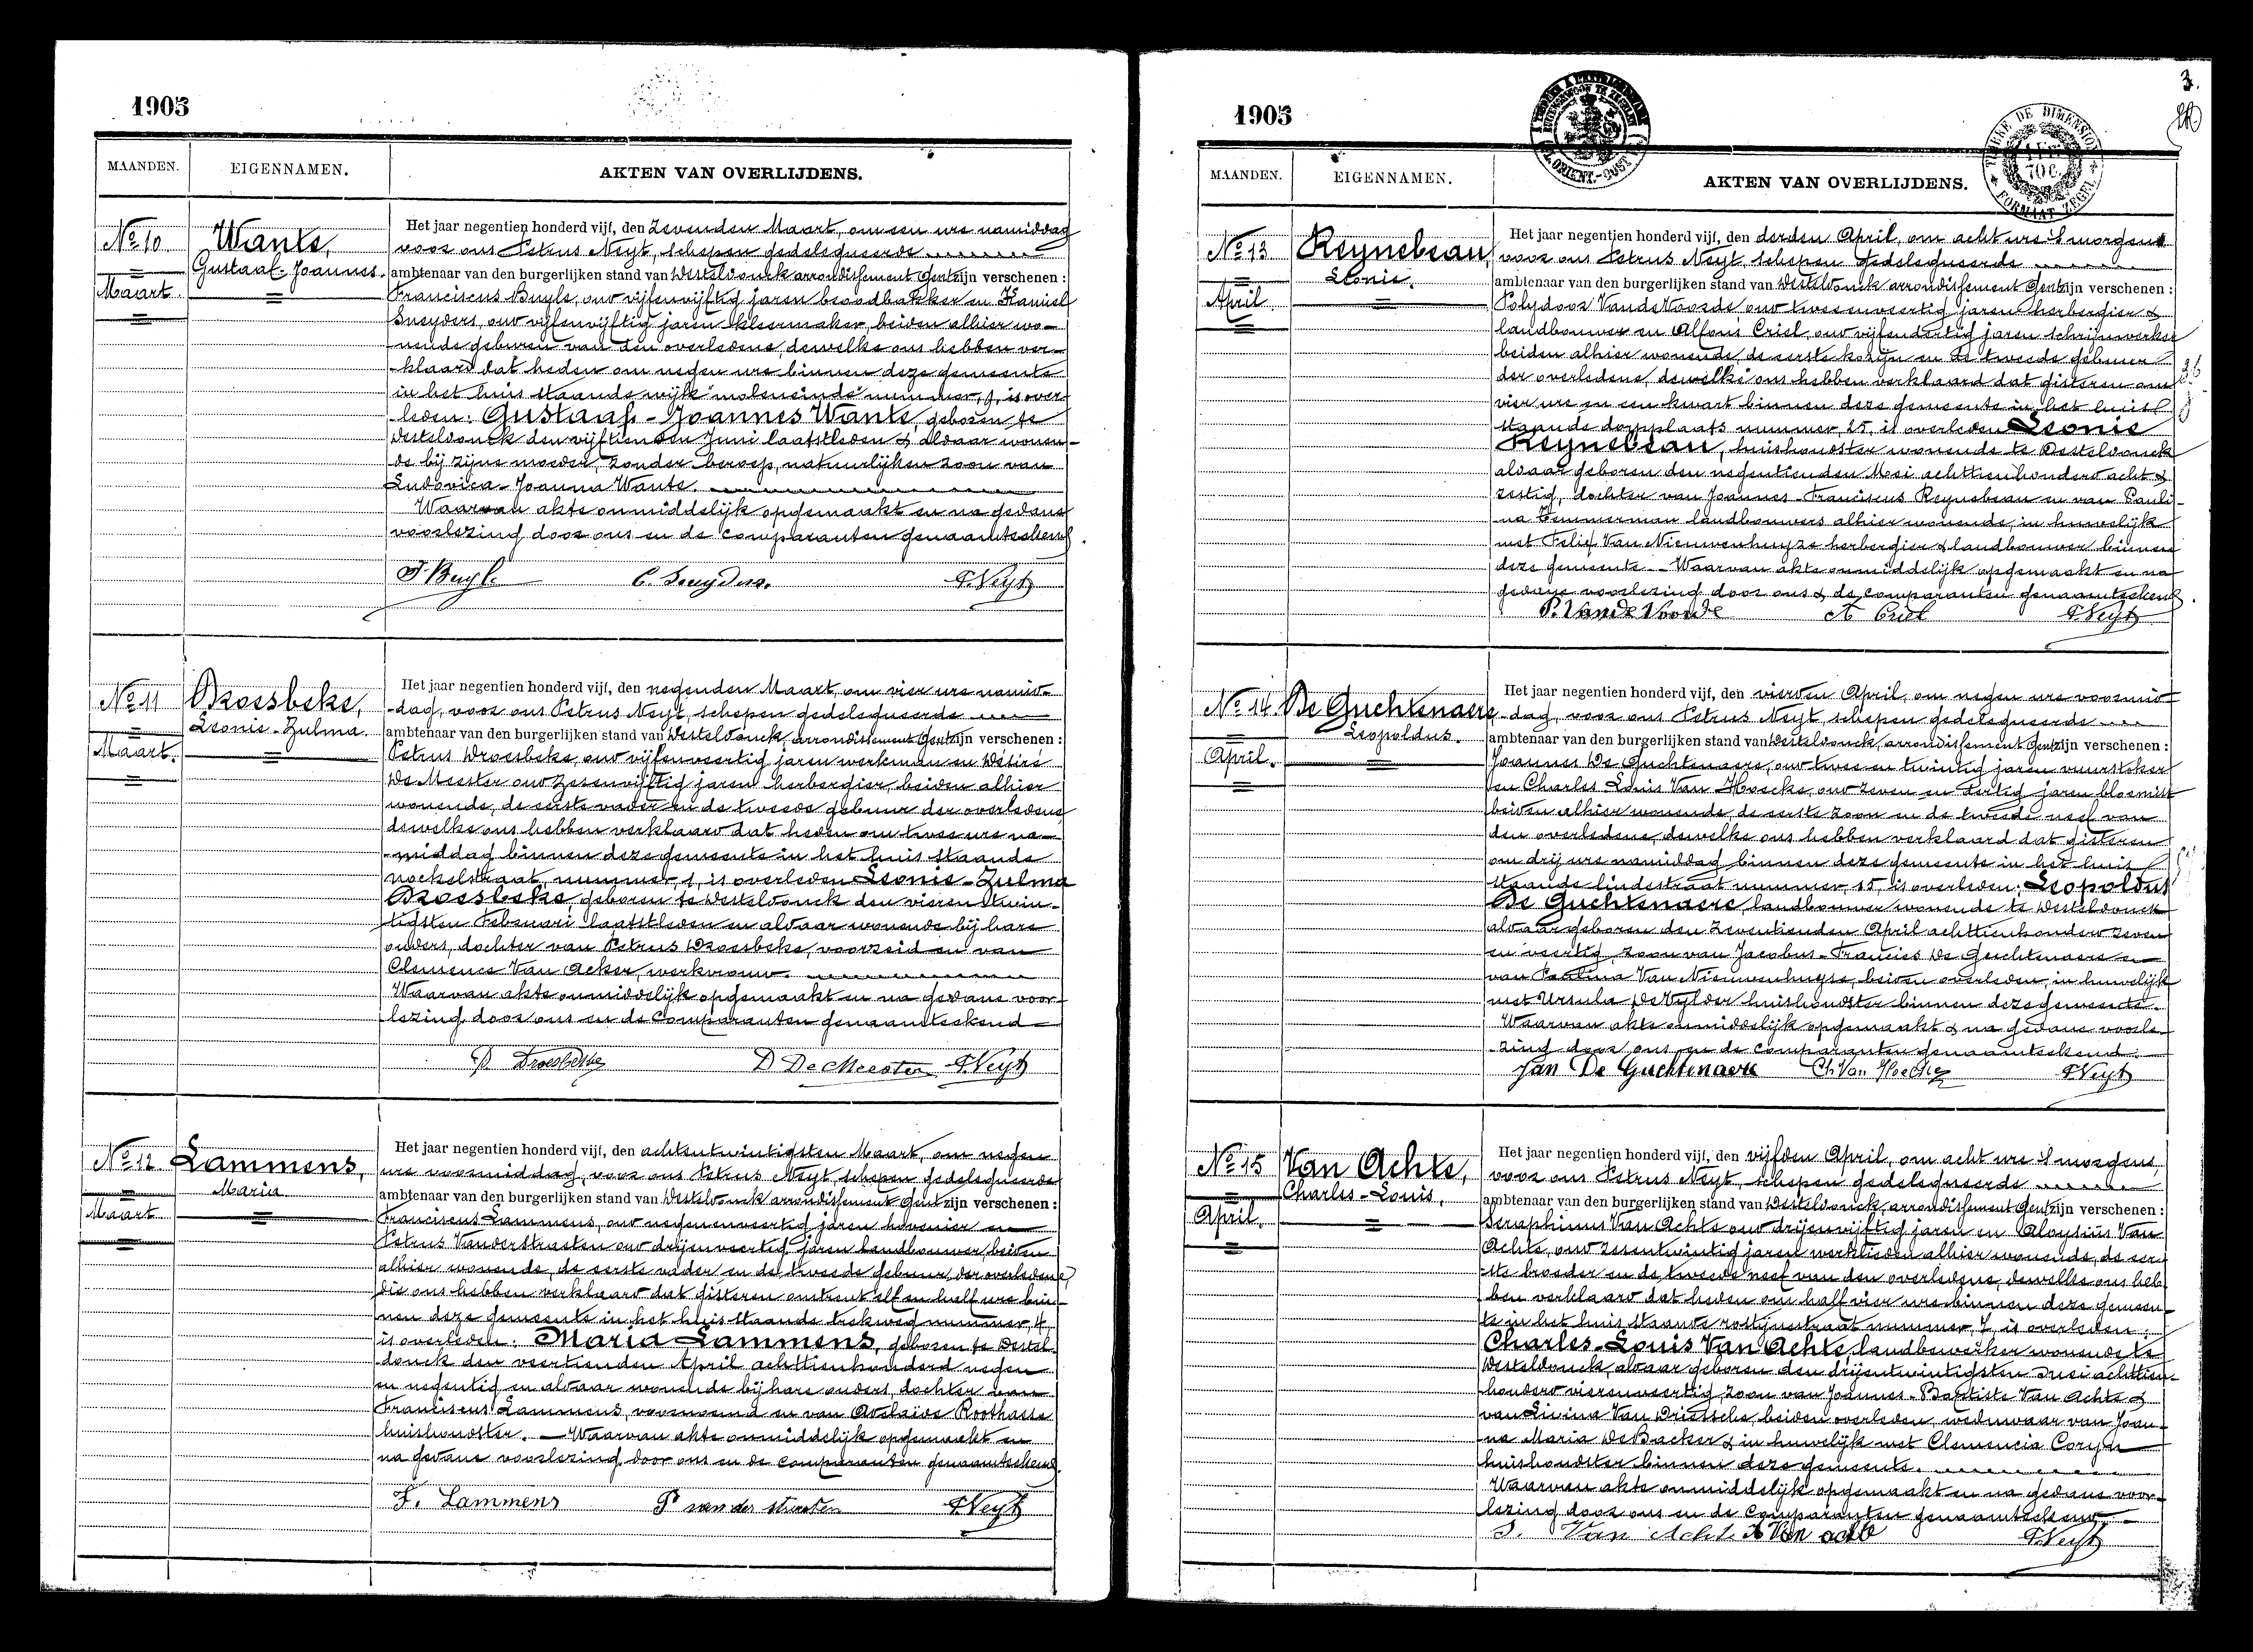 1905
MAANDEN.
EIGENNAMEN.
AKTEN VAN OVERLIJDENS.
No 10
Maart.
Wante,
Gustaaf-Joannes.
Het jaar negentien honderd vijf, den Zevenden Maart, om een ure namiddag
voor ons Petrus Neyt, schepen gedelegueerde
ambtenaar van den burgerlijken stand van Desteldonck, arrondissement Gent zijn verschenen :
Franciscus Buyle, oud vijfenvijftig jaren broodbakker en Kamiel
Sneyders, oud vijfenvijftig jaren kleermaker, beiden alhier wo-
nende geburen van den overledene, dewelke ons hebben ver-
klaard dat heden om negen ure binnen deze gemeente
in het huis staande wijk moleneinde nummer, 9, is over-
leden: Gustaaf-Joannes Wante, geboren te
Desteldonck den vijftienden Juni laatstleden & aldaar wonen-
de bij zijne moeder, zonder beroep, natuurlijken zoon van
Ludovica-Joanna Wante.
Waarvan akte onmiddelijk opgemaakt en na gedane
voorlezing door ons en de comparanten genaamteekend.
F. Buyle C. Sneyders. P. Neyt
No 11
Maart.
Droesbeke,
Leonie-Zulma.
Het jaar negentien honderd vijf, den negenden Maart, om vier ure namid-
dag, voor ons Petrus Neyt, schepen gedelegueerde
ambtenaar van den burgerlijken stand van Desteldonck, arrondissement Gent zijn verschenen :
Petrus Droesbeke, oud vijfenveertig jaren werkman en Désiré
De Meester oud zesenvijftig jaren herbergier, beiden alhier
wonende, de eerste vader en de tweede gebuur der overledene,
dewelke ons hebben verklaard dat heden om twee ure na-
middag binnen deze gemeente in het huis staande
nockelstraat, nummer, 1, is overleden Leonie-Zulma
Droesbeke, geboren te Desteldonck den vieren twin-
tigsten Februari laatstleden en aldaar wonende bij hare
ouders, dochter van Petrus Droesbeke, voorzeid en van
Clemence Van Acker, werkvrouw.
Waarvan akte onmiddelijk opgemaakt en na gedane voor-
lezing door ons en de comparanten genaamteekend
P Droesbeke D De Meester P. Neyt
No 12
Maart
Lammens,
Maria
Het jaar negentien honderd vijf, den achtentwintigsten Maart, om negen
ure voormiddag, voor ons Petrus Neyt, schepen gedelegueerde
ambtenaar van den burgerlijken stand van Desteldonck arrondissement Gent zijn verschenen :
Franciscus Lammens, oud negenenveertig jaren hovenier en
Petrus Vanderstraeten oud drijenveertig jaren landbouwer beiden
alhier wonende, de eerste vader en de tweede gebuur der overledene,
die ons hebben verklaard dat gisteren omtrent elf en half ure bin-
nen deze gemeente in het huis staande nummer, 4,
is overleden: Maria Lammens, geboren te Destel-
donck den veertienden April achttienhonderd negen
en negentig en aldaar wonende bij hare ouders, dochter van
Franciscus Lammens, voornoemd en van Adelaide Roothaese
huishoudster. Waarvan akte onmiddelijk opgemaakt en
na gedane voorlezing door ons en de comparanten genaamteekend.
F. Lammens P van der straeten P. Neyt
3.
1905
MAANDEN.
EIGENNAMEN.
AKTEN VAN OVERLIJDENS.
TIMBRE DE DIMENSION
70 C.
FORMAAT ZEGEL
No 13
April
Reynebeau,
Leonie.
Het jaar negentien honderd vijf, den derden April, om acht ure 's morgens
voor ons Petrus Neyt, schepen gedelegueerde
ambtenaar van den burgerlijken stand van Desteldonck arrondissement Gent zijn verschenen :
Polydoor VandeVoorde, oud tweeenveertig jaren herbergier &
landbouwer en Alfons Criel, oud vijfendertig jaren schrijnwerker
beiden alhier wonende, de eerste kozijn en de tweede gebuur
der overledene, dewelke ons hebben verklaard dat gisteren om
vier ure en een kwart binnen deze gemeente in het huis
staande dorpplaats nummer, 25, is overleden Leonie
Reynebeau, huishoudster wonende te Desteldonck
aldaar geboren den negentienden Mei achttienhonderd acht &
zestig, dochter van Joannes-Franciscus Reynebeau en van Pauli-
na Temmerman landbouwers alhier wonende, in huwelijk
met Felix Van Nieuwenhuyze herbergier & landbouwer binnen
deze gemeente. Waarvan akte onmiddelijk opgemaakt en na
gedane voorlezing door ons & de comparanten genaamteekend.
P. VandeVoorde A Criel P. Neyt
No 14
April.
De Guchtenaere
Leopoldus.
Het jaar negentien honderd vijf, den vierden April, om negen ure voormid-
dag, voor ons Petrus Neyt, schepen gedelegueerde
ambtenaar van den burgerlijken stand van Desteldonck, arrondissement Gent zijn verschenen :
Joannes De Guchtenaere, oud twee en twintig jaren vuurstoker
en Charles Louis Van Hoecke, oud zeven en dertig jaren bloemist
beiden alhier wonende, de eerste zoon en de tweede neef van
den overledene, dewelke ons hebben verklaard dat gisteren
om drij ure namiddag binnen deze gemeente in het huis
staande lindestraat nummer, 15, is overleden: Leopoldus
De Guchtenaere, landbouwer wonende te Desteldonck
aldaar geboren den zeventienden April achttienhonderd zeven
en veertig, zoon van Jacobus-Francies De Guchtenaere en
van Paulina Van Nieuwenhuyse, beiden overleden, in huwelijk
met Ursula De Vylder huishoudster binnen deze gemeente.
Waarvan akte onmiddelijk opgemaakt & na gedane voorle-
zing door ons en de comparanten genaamteekend.
Jan De Guchtenaere Ch. Van Hoecke P. Neyt
No 15
April.
Van Achte,
Charles-Louis.
Het jaar negentien honderd vijf, den vijfden April, om acht ure 's morgens,
voor ons Petrus Neyt, schepen gedelegueerde
ambtenaar van den burgerlijken stand van Desteldonck, arrondissement Gent zijn verschenen :
Seraphinus Van Achte oud drijenvijftig jaren en Aloysius Van
Achte, oud zesentwintig jaren werklieden alhier wonende, de eer-
ste broeder en de tweede neef van den overledene, dewelke ons heb-
ben verklaard dat heden om half vier ure binnen deze gemeen-
te in het huis staande rostijnestraat nummer, 7, is overleden:
Charles-Louis Van Achte, landbewerker wonende te
Desteldonck, aldaar geboren den drijentwintigsten achttien-
honderd vierenveertig, zoon van Joannes-Baptiste Van Achte &
van Livina Van Driessche, beiden overleden, weduwaar van Joan-
na Maria DeBacker & in huwelijk met Clemencia Coryn
huishoudster binnen deze gemeente.
Waarvan akte onmiddelijk opgemaakt en na gedane voor-
lezing door ons en de comparanten genaamteekend,
S. Van Acht. A Van acht P. Neyt